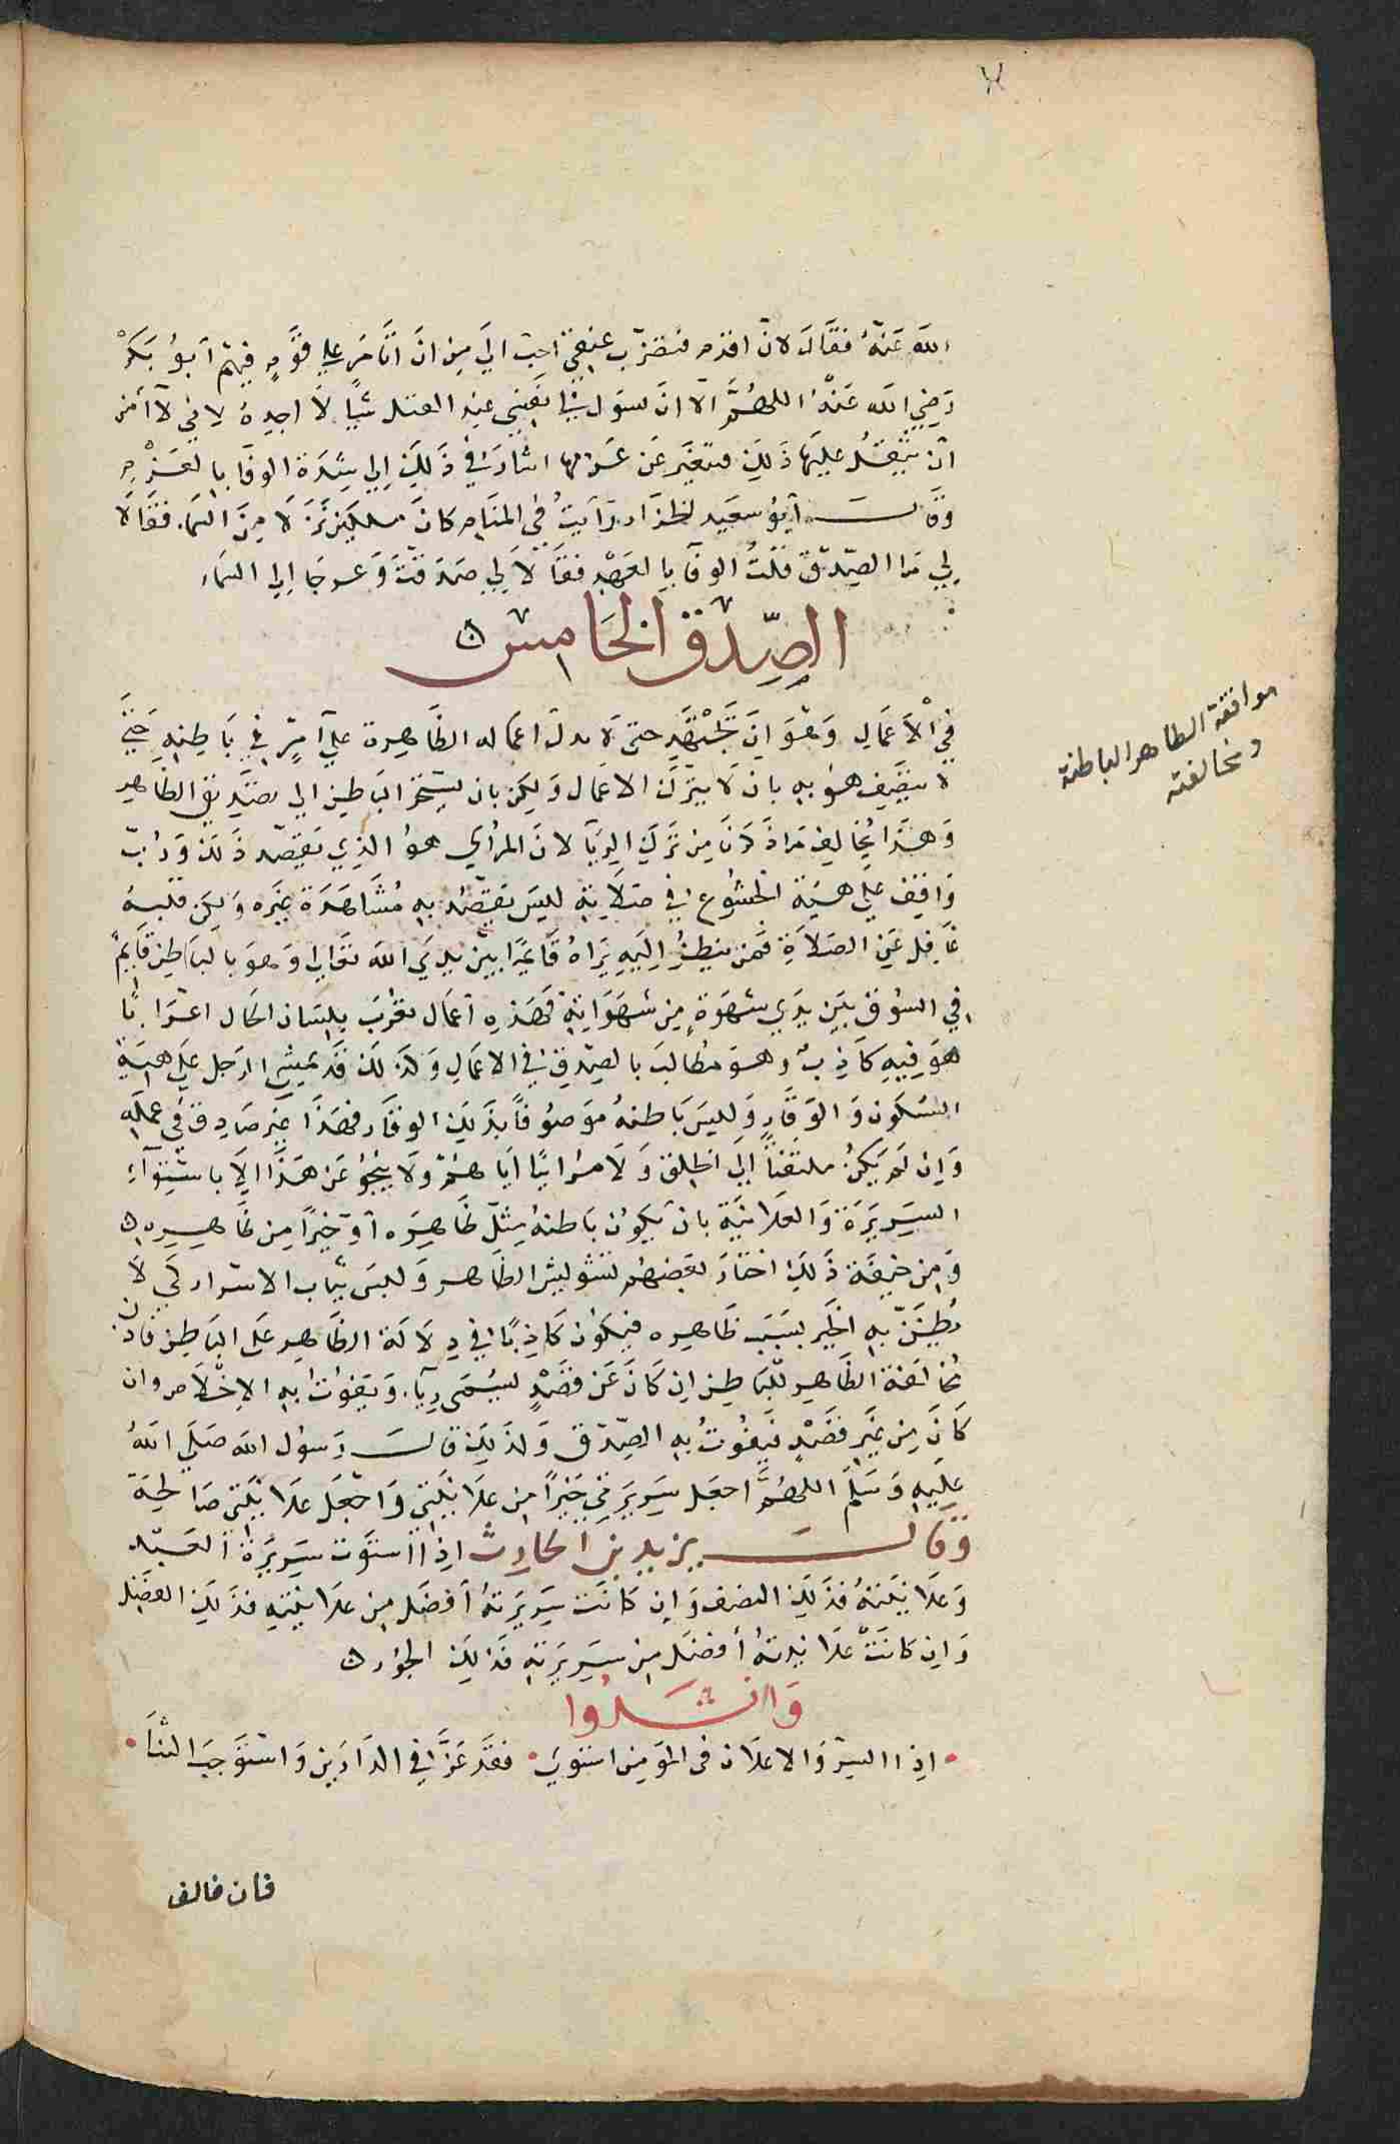 الله عَنْهُ فقال لان اقدم فتضرب عنقي احب الي من ان اتامر على قوم فيهم ابو بكر
رضي الله عنه اللهم الا ان تسول لي نفسي عند القتل شيا لا اجده لاني لا آمن
ان يثقل عليها ذلك فتتغير عن عزمها اشار في ذلك الي شدة الوفا بالعزم
وقال ابو سعيد الخزاز رايت في المنام كان ملكين نزلا من السما، فقالا
لي ما الصدق قلت الوفا بالعهد فقالا لي صدقت وعرجا الي السماء
الصدق الخامس ه
في الاعمال وهو ان يجتهد حتى لا تدل اعماله الظاهرة علي امر في باطنه حتي
لا يتصف هو به بان لا يترك الاعمال ولكن بان يستجر الباطن الي تصديق الظاهر
وهذا يخالف ما ذكرنا من ترك الريا لان المرائي هو الذي يقصد ذلك ورب
واقف علي هيئة الخشوع في صلاته ليس يقصد به مشاهدة غيره ولكن قلبه
غافل عن الصلاة فمن ينظر اليه يراه قائما بين يدي الله تعالي وهو بالباطن قايم
في السوق بين يدي شهوة من شهواته فهذه اعمال تعرب بلسان الحال اعرابا
هو فيه كاذب وهو مطالب بالصدق في الاعمال وكذلك قد يمشي الرجل على هيئة
السكون والوقار وليس باطنه موصوفا بذلك الوقار فهذا غير صادق في عمله
وان لم يكن ملتفتا الي الخلق ولا مرائيا اياهم ولا ينجو عن هذا الا باستوآء
السريرة والعلانية بان يكون باطنه مثل ظاهره او خيرا من ظاهره ه
ومن خيفة ذلك اختار بعضهم تشويش الظاهر ولبس ثياب الاشرار كي لا
يظن به الخير بسبب ظاهره فيكون كاذبا في دلالة الظاهر على الباطن فاذن
مخالفة الظاهر للباطن ان كان عن قصد يسمى ريآ، ويفوت به الاخلاص وان
كان من غير قصد فيفوت به الصدق ولذلك قال رسول الله صلي الله
عليه وسلم اللهم اجعل سريرتي خيرا من علانيتي واجعل علانيتي صالحة
وقال يزيد بن الحارث اذا استوت سريرة العبد
وعلانيته فذلك النصف وان كانت سريرته افضل من علانيته فذلك الفضل
وان كانت علانيته افضل من سريرته فذلك الجور ه
وانشدوا
اذا السر والاعلان في المومن استوي • فقد عز في الدارين واستوجب الثنا •
فان خالف
موافقة الظاهر الباطنة
ومخالفته